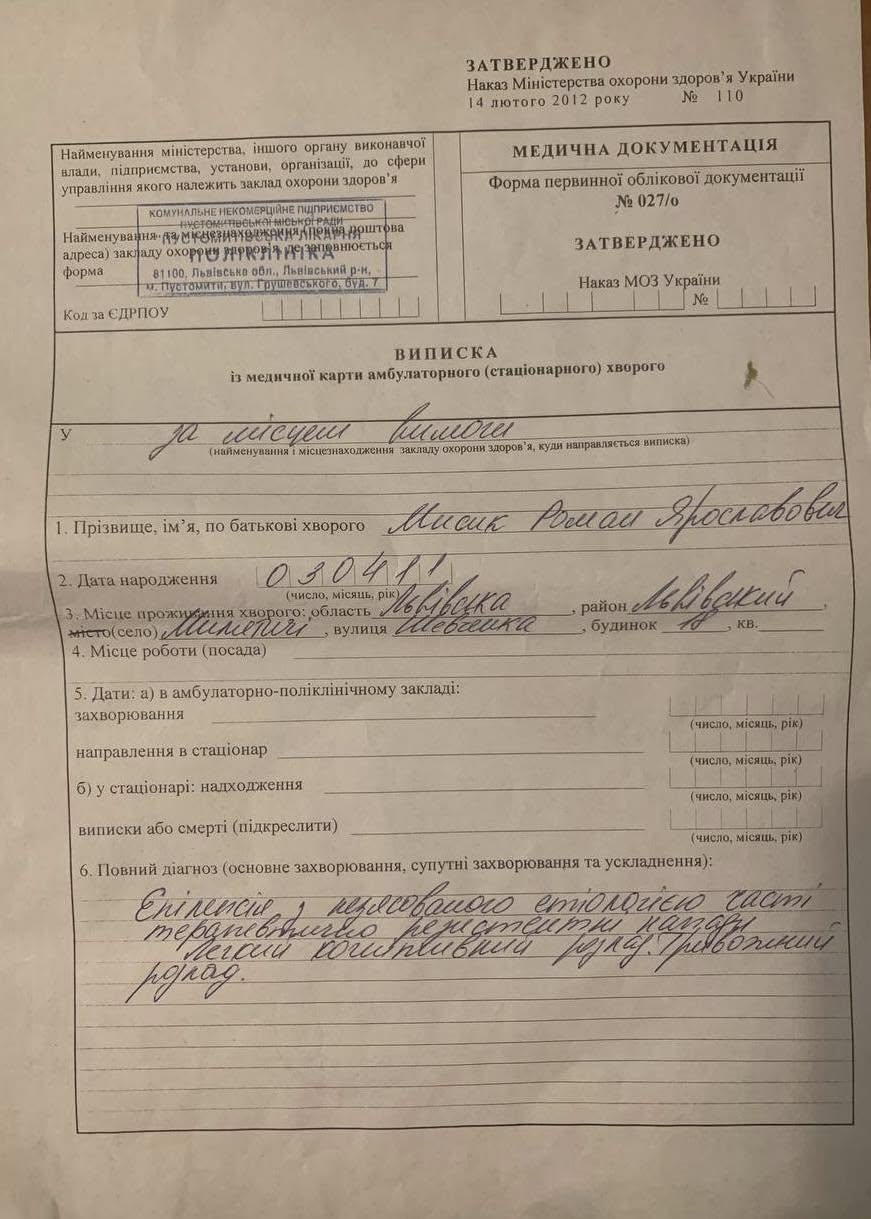 ЗАТВЕРДЖЕНО
Наказ Міністерства охорони здоров'я України
14 лютого 2012 року № 110
Найменування міністерства, іншого органу виконавчої
влади, підприємства, установи, організації, до сфери
управління якого належить заклад охорони здоров'я
КОМУНАЛЬНЕ НЕКОМЕРЦІЙНЕ ПІДПРИЄМСТВО
ПУСТОМИТІВСЬКОЇ МІСЬКОЇ РАДИ
ПУСТОМИТІВСЬКА ЛІКАРНЯ
Найменування та місцезнаходження (повна поштова
адреса) закладу охорони здоров'я, де заповнюється
форма
ПОЛІКЛІНІКА
81100, Львівська обл., Львівський р-н,
м. Пустомити, вул. Грушевського, буд. 7
Код за ЄДРПОУ
МЕДИЧНА ДОКУМЕНТАЦІЯ
Форма первинної облікової документації
№ 027/о
ЗАТВЕРДЖЕНО
Наказ МОЗ України
№
ВИПИСКА
із медичної карти амбулаторного (стаціонарного) хворого
У за місцем вимоги
(найменування і місцезнаходження закладу охорони здоров'я, куди направляється виписка)
1. Прізвище, ім'я, по батькові хворого Мисик Роман Ярославович
2. Дата народження 030411
(число, місяць, рік)
3. Місце проживання хворого: область Львівська, район Львівський,
місто(село), вулиця Шевченка, будинок 18, кв.
4. Місце роботи (посада)
5. Дати: а) в амбулаторно-поліклінічному закладі:
захворювання
(число, місяць, рік)
направлення в стаціонар
(число, місяць, рік)
б) у стаціонарі: надходження
(число, місяць, рік)
виписки або смерті (підкреслити)
(число, місяць, рік)
6. Повний діагноз (основне захворювання, супутні захворювання та ускладнення):
Епілепсія з нез'ясованою етіологією часті
терапевтично резистентні напади
Легкий когнітивний розлад. Тривожний
розлад.